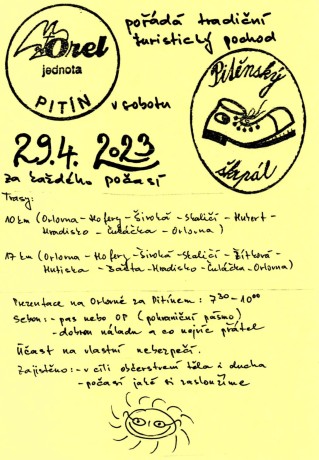 Orel
jednota
PITÍN
pořádá tradiční
turistický pochod
v sobotu
Pitěnský
šlapál
29.4. 2023
za každého počasí
Trasy:
10 km (Orlovna - Hofery - Široká - Skaličí - Hubert -
Hradisko - Čuláčka - Orlovna)
17 km (Orlovna - Hofery - Široká - Skaličí - Žítková -
Hutiska - Bašta - Hradisko - Čuláčka - Orlovna)
Prezentace na Orlovně za Pitínem: 7³⁰ - 10⁰⁰
Sebou: - pas nebo OP (pohraniční pásmo)
- dobrou náladu a co nejvíc přátel
Účast na vlastní nebezpečí.
Zajištěno: - v cíli občerstvení těla i ducha
- počasí jaké si zasloužíme